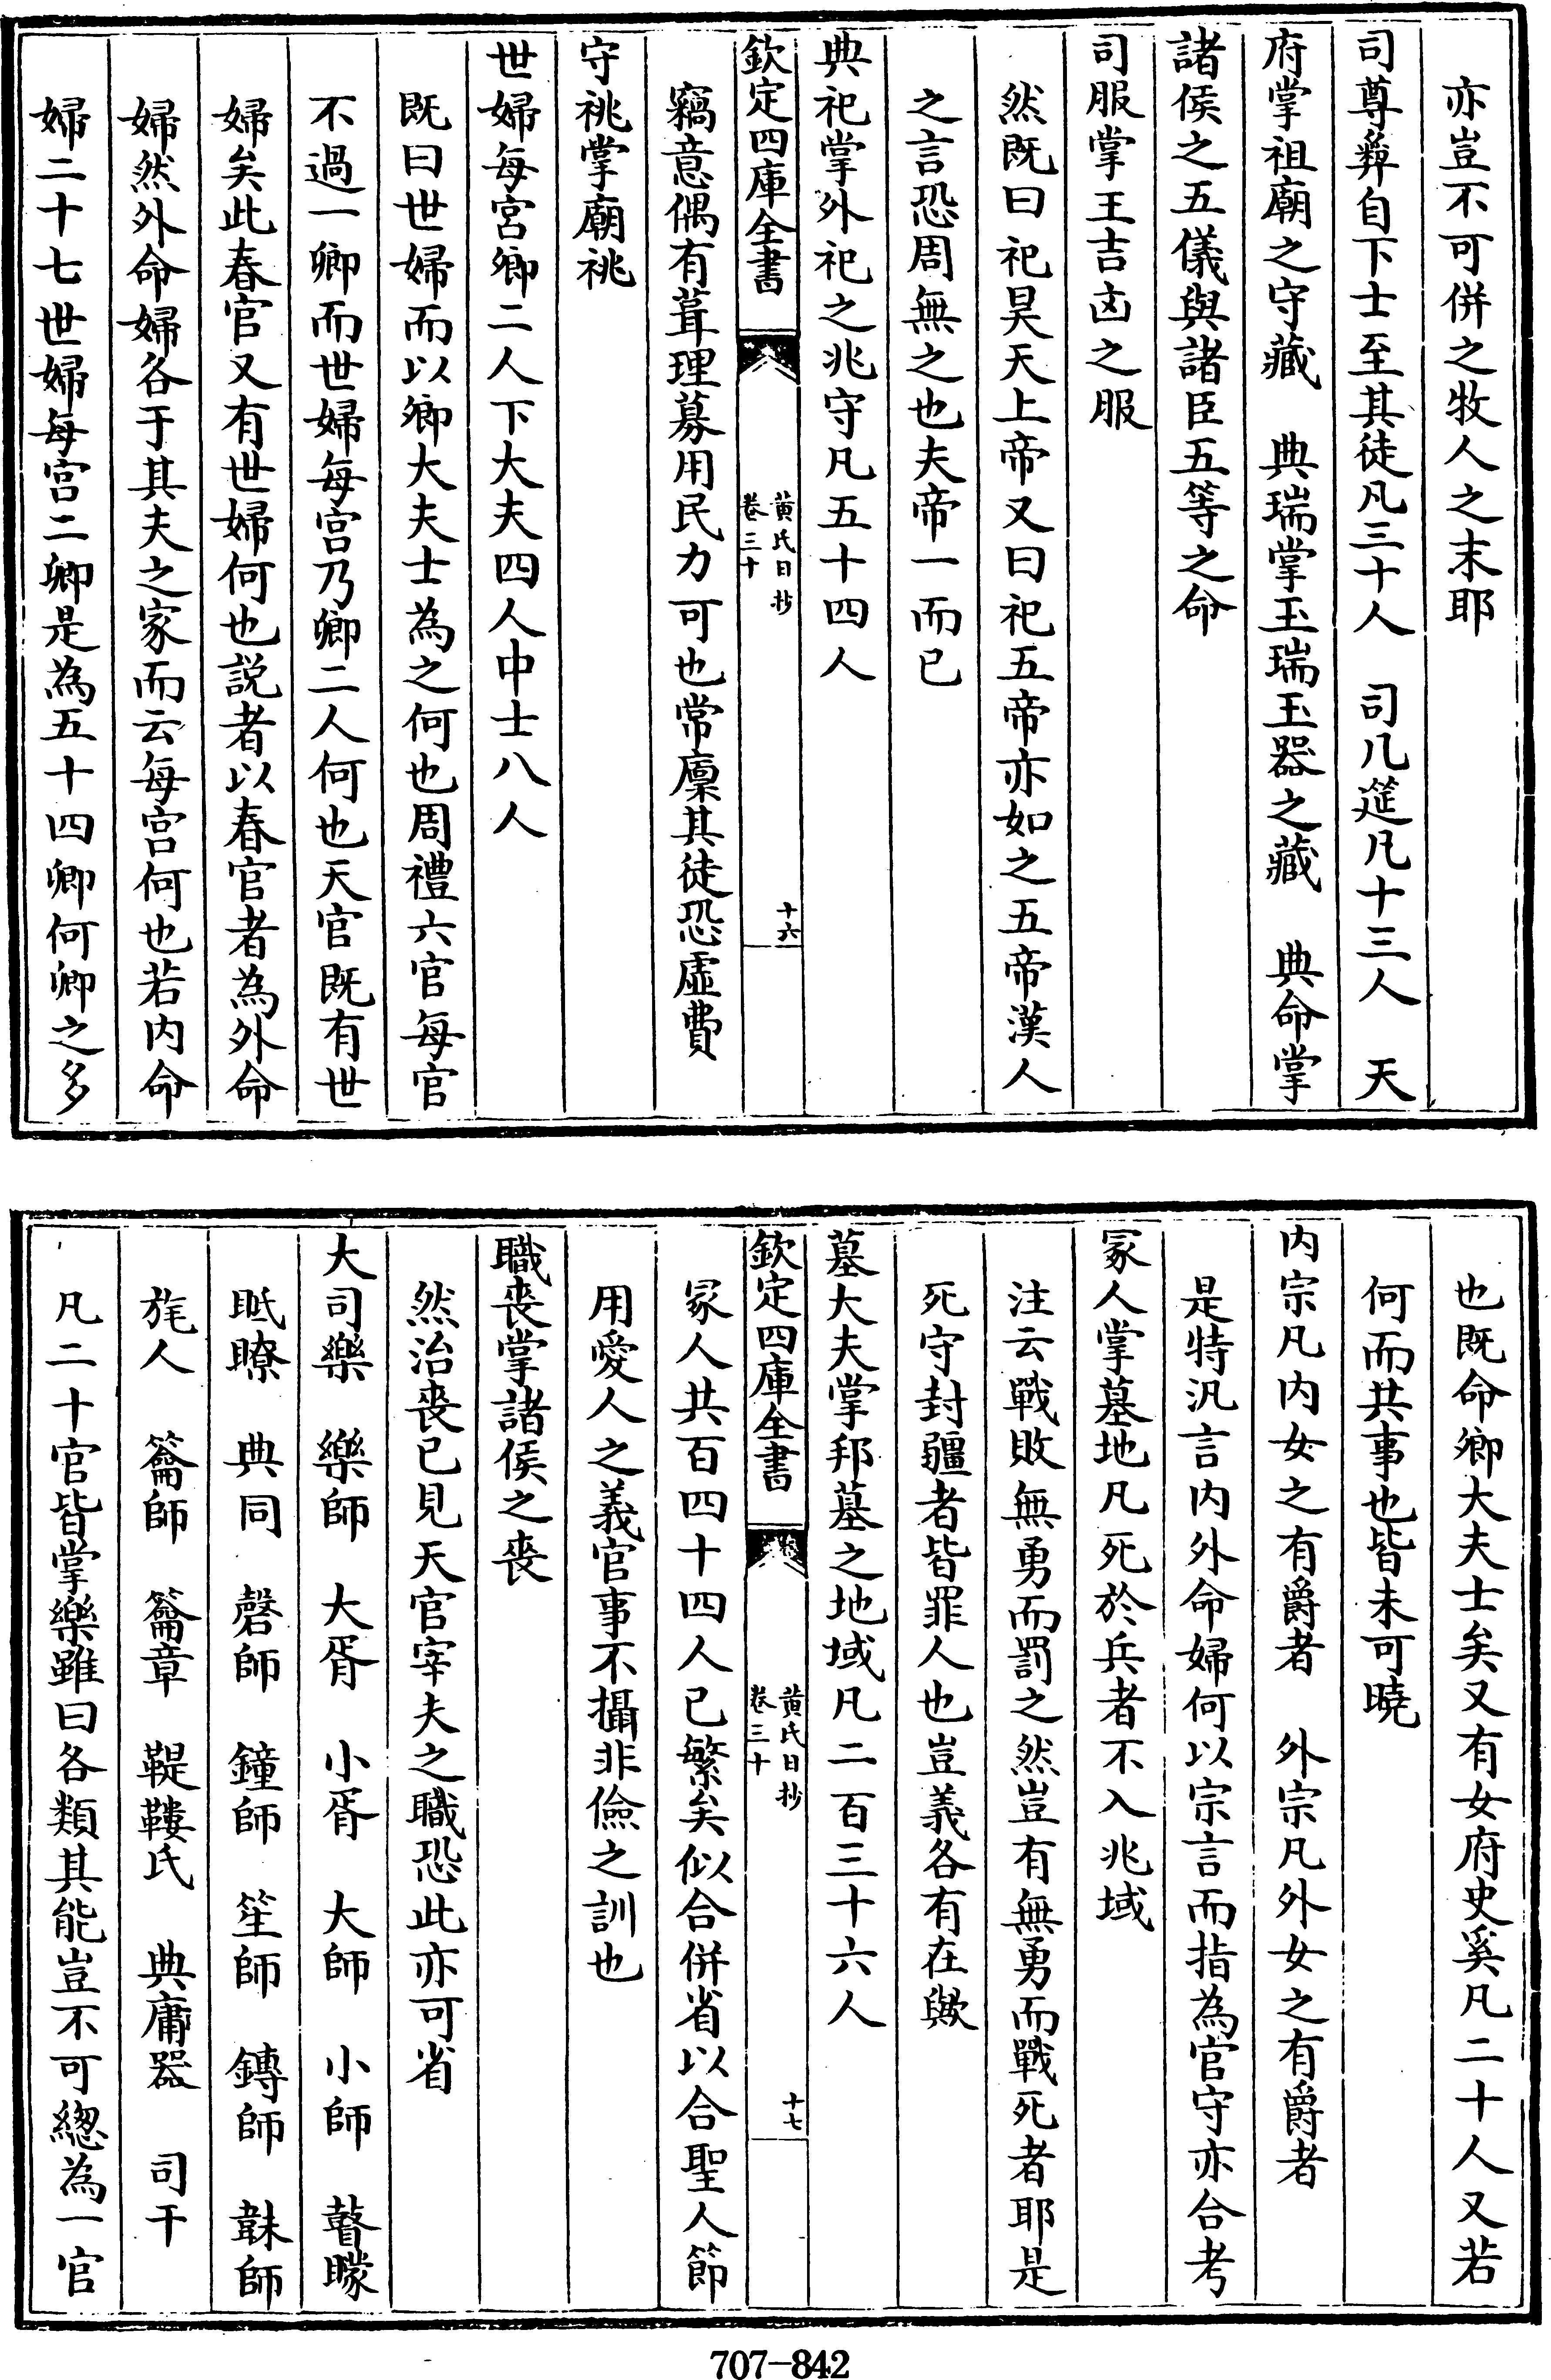 亦豈不可併之牧人之末耶
司尊彛自下士至其徒凡三十人　司几筵凡十三人　天
府掌祖廟之守藏　典瑞掌玉瑞玉器之藏　典命掌
諸侯之五儀與諸臣五等之命
司服掌王吉凶之服
然既曰祀昊天上帝又曰祀五帝亦如之五帝漢人
之言恐周無之也夫帝一而已
典祀掌外祀之兆守凡五十四人
欽定四庫全書　黄氏日抄卷三十　十六
竊意偶有葺理募用民力可也常廩其徒恐虛費
守祧掌廟祧
世婦每宫卿二人下大夫四人中士八人
既曰世婦而以卿大夫士為之何也周禮六官每官
不過一卿而世婦每宫乃卿二人何也天官既有世
婦矣此春官又有世婦何也説者以春官者為外命
婦然外命婦各于其夫之家而云每宫何也若内命
婦二十七世婦每宫二卿是為五十四卿何卿之多
也既命卿大夫士矣又有女府史奚凡二十人又若
何而共事也皆未可曉
内宗凡内女之有爵者　外宗凡外女之有爵者
是特汎言内外命婦何以宗言而指為官守亦合考
冢人掌墓地凡死於兵者不入兆域
注云戰敗無勇而罰之然豈有無勇而戰死者耶是
死守封疆者皆罪人也豈義各有在歟
墓大夫掌邦墓之地域凡二百三十六人
欽定四庫全書　黄氏日抄卷三十　十七
冢人共百四十四人已繁矣似合併省以合聖人節
用愛人之義官事不攝非儉之訓也
職喪掌諸侯之喪
然治喪已見天官宰夫之職恐此亦可省
大司樂　樂師　大胥　小胥　大師　小師　瞽矇
眡瞭　典同　磬師　鐘師　笙師　鏄師　韎師
旄人　籥師　籥章　鞮鞻氏　典庸器　司干
凡二十官皆掌樂雖曰各類其能豈不可總為一官
707-842